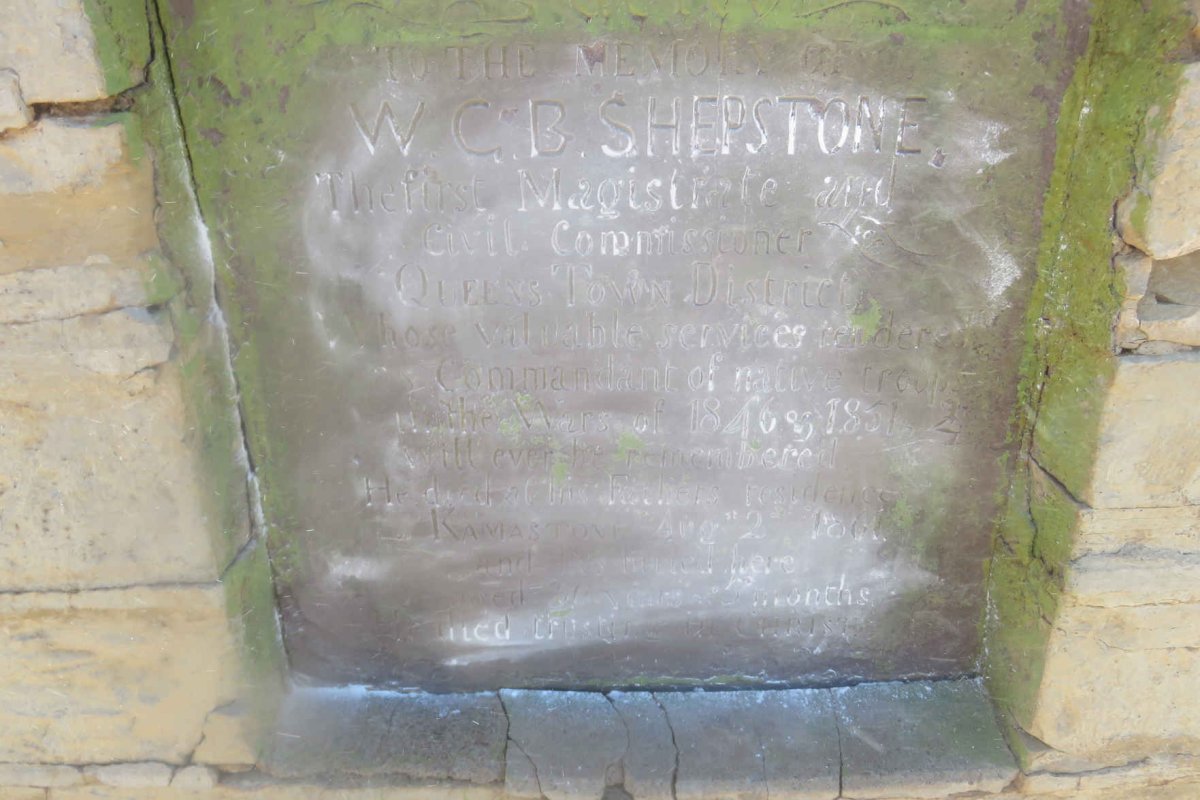 TO THE MEMORY OF
W.C.B. SHEPSTONE,
The first Magistrate and
Civil Commissioner
QUEENS TOWN DISTRICT,
whose valuable services rendered
Commandant of native troops
in the Wars of 1846 & 1851
will ever be remembered
He died at his Fathers residence
KAMASTONE Aug 2
and is buried here
Aged years months
He died trusting CHRIST